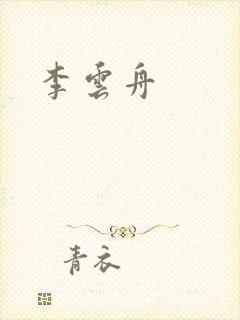 李雲舟
青衣